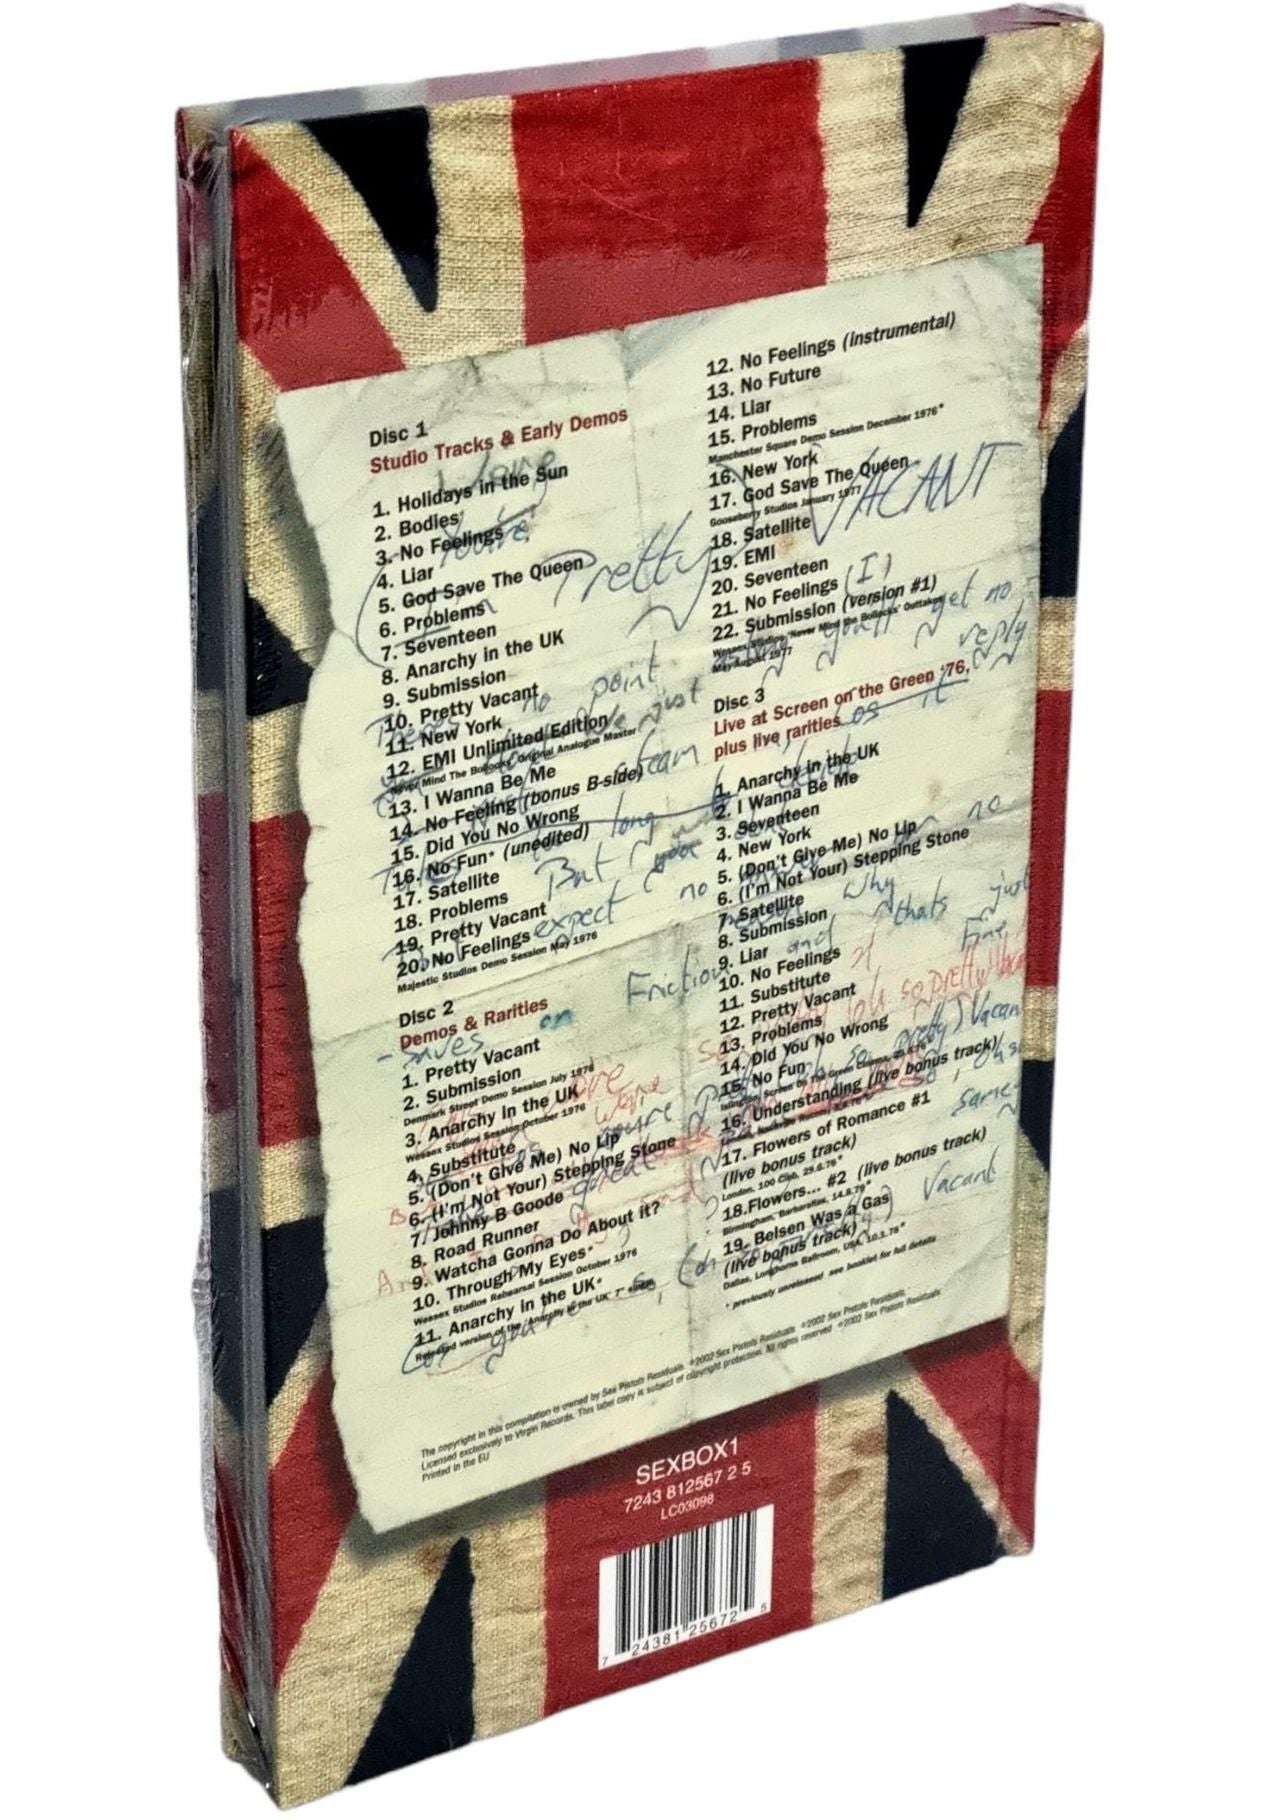 Disc 1
Studio Tracks & Early Demos
1. Holidays in the Sun
2. Bodies
3. No Feelings
4. Liar
5. God Save The Queen
6. Problems
7. Seventeen
8. Anarchy in the UK
9. Submission
10. Pretty Vacant
11. New York
12. EMI Unlimited Edition
'Never Mind The Bollocks' Original Analogue Master
13. I Wanna Be Me
14. No Feeling (bonus B-side)
15. Did You No Wrong
16. No Fun* (unedited)
17. Satellite
18. Problems
19. Pretty Vacant
20. No Feelings
Majestic Studios Demo Session May 1976
Disc 2
Demos & Rarities
1. Pretty Vacant
2. Submission
Denmark Street Demo Session July 1976
3. Anarchy in the UK
Wessex Studios Session October 1976
4. Substitute
5. (Don't Give Me) No Lip
6. (I'm Not Your) Stepping Stone
7. Johnny B Goode
8. Road Runner
9. Watcha Gonna Do About it?
10. Through My Eyes*
Wessex Studios Rehearsal Session October 1976
11. Anarchy in the UK*
Released version of the 'Anarchy in the UK' 7"
12. No Feelings (instrumental)
13. No Future
14. Liar
15. Problems
Manchester Square Demo Session December 1976*
16. New York
17. God Save The Queen
Gooseberry Studios January 1977
18. Satellite
19. EMI
20. Seventeen
21. No Feelings
22. Submission (version #1)
Wessex Studios 'Never Mind the Bollocks' Outtakes
May-August 1977
Disc 3
Live at Screen on the Green '76,
plus live rarities
1. Anarchy in the UK
2. I Wanna Be Me
3. Seventeen
4. New York
5. (Don't Give Me) No Lip
6. (I'm Not Your) Stepping Stone
7. Satellite
8. Submission
9. Liar
10. No Feelings
11. Substitute
12. Pretty Vacant
13. Problems
14. Did You No Wrong
15. No Fun
Islington Screen On The Green Cinema, 29.8.76*
16. Understanding (live bonus track)
London, Nashville Rooms
17. Flowers of Romance #1
(live bonus track)
London, 100 Club, 29.6.76*
18.Flowers... #2 (live bonus track)
Birmingham, Barbarellas, 14.8.76*
19. Belsen Was a Gas
(live bonus track)
Dallas, Longhorns Ballroom, USA, 10.1.78*
* previously unreleased see booklet for full details
The copyright in this compilation is owned by Sex Pistols Residuals ℗2002 Sex Pistols Residuals ©2002 Sex Pistols Residuals
Licensed exclusively to Virgin Records. This label copy is subject of copyright protection. All rights reserved ©2002 Sex Pistols Residuals
Printed in the EU
SEXBOX1
7243 812567 2 5
LC03098
7 24381 25672 5
You're
Pretty VACANT
(I)
no point
you'll get no
reply
just
But
expect no
why
and thats just
Fine
Friction
oh so pretty
so pretty) Vacant
Vacant
same